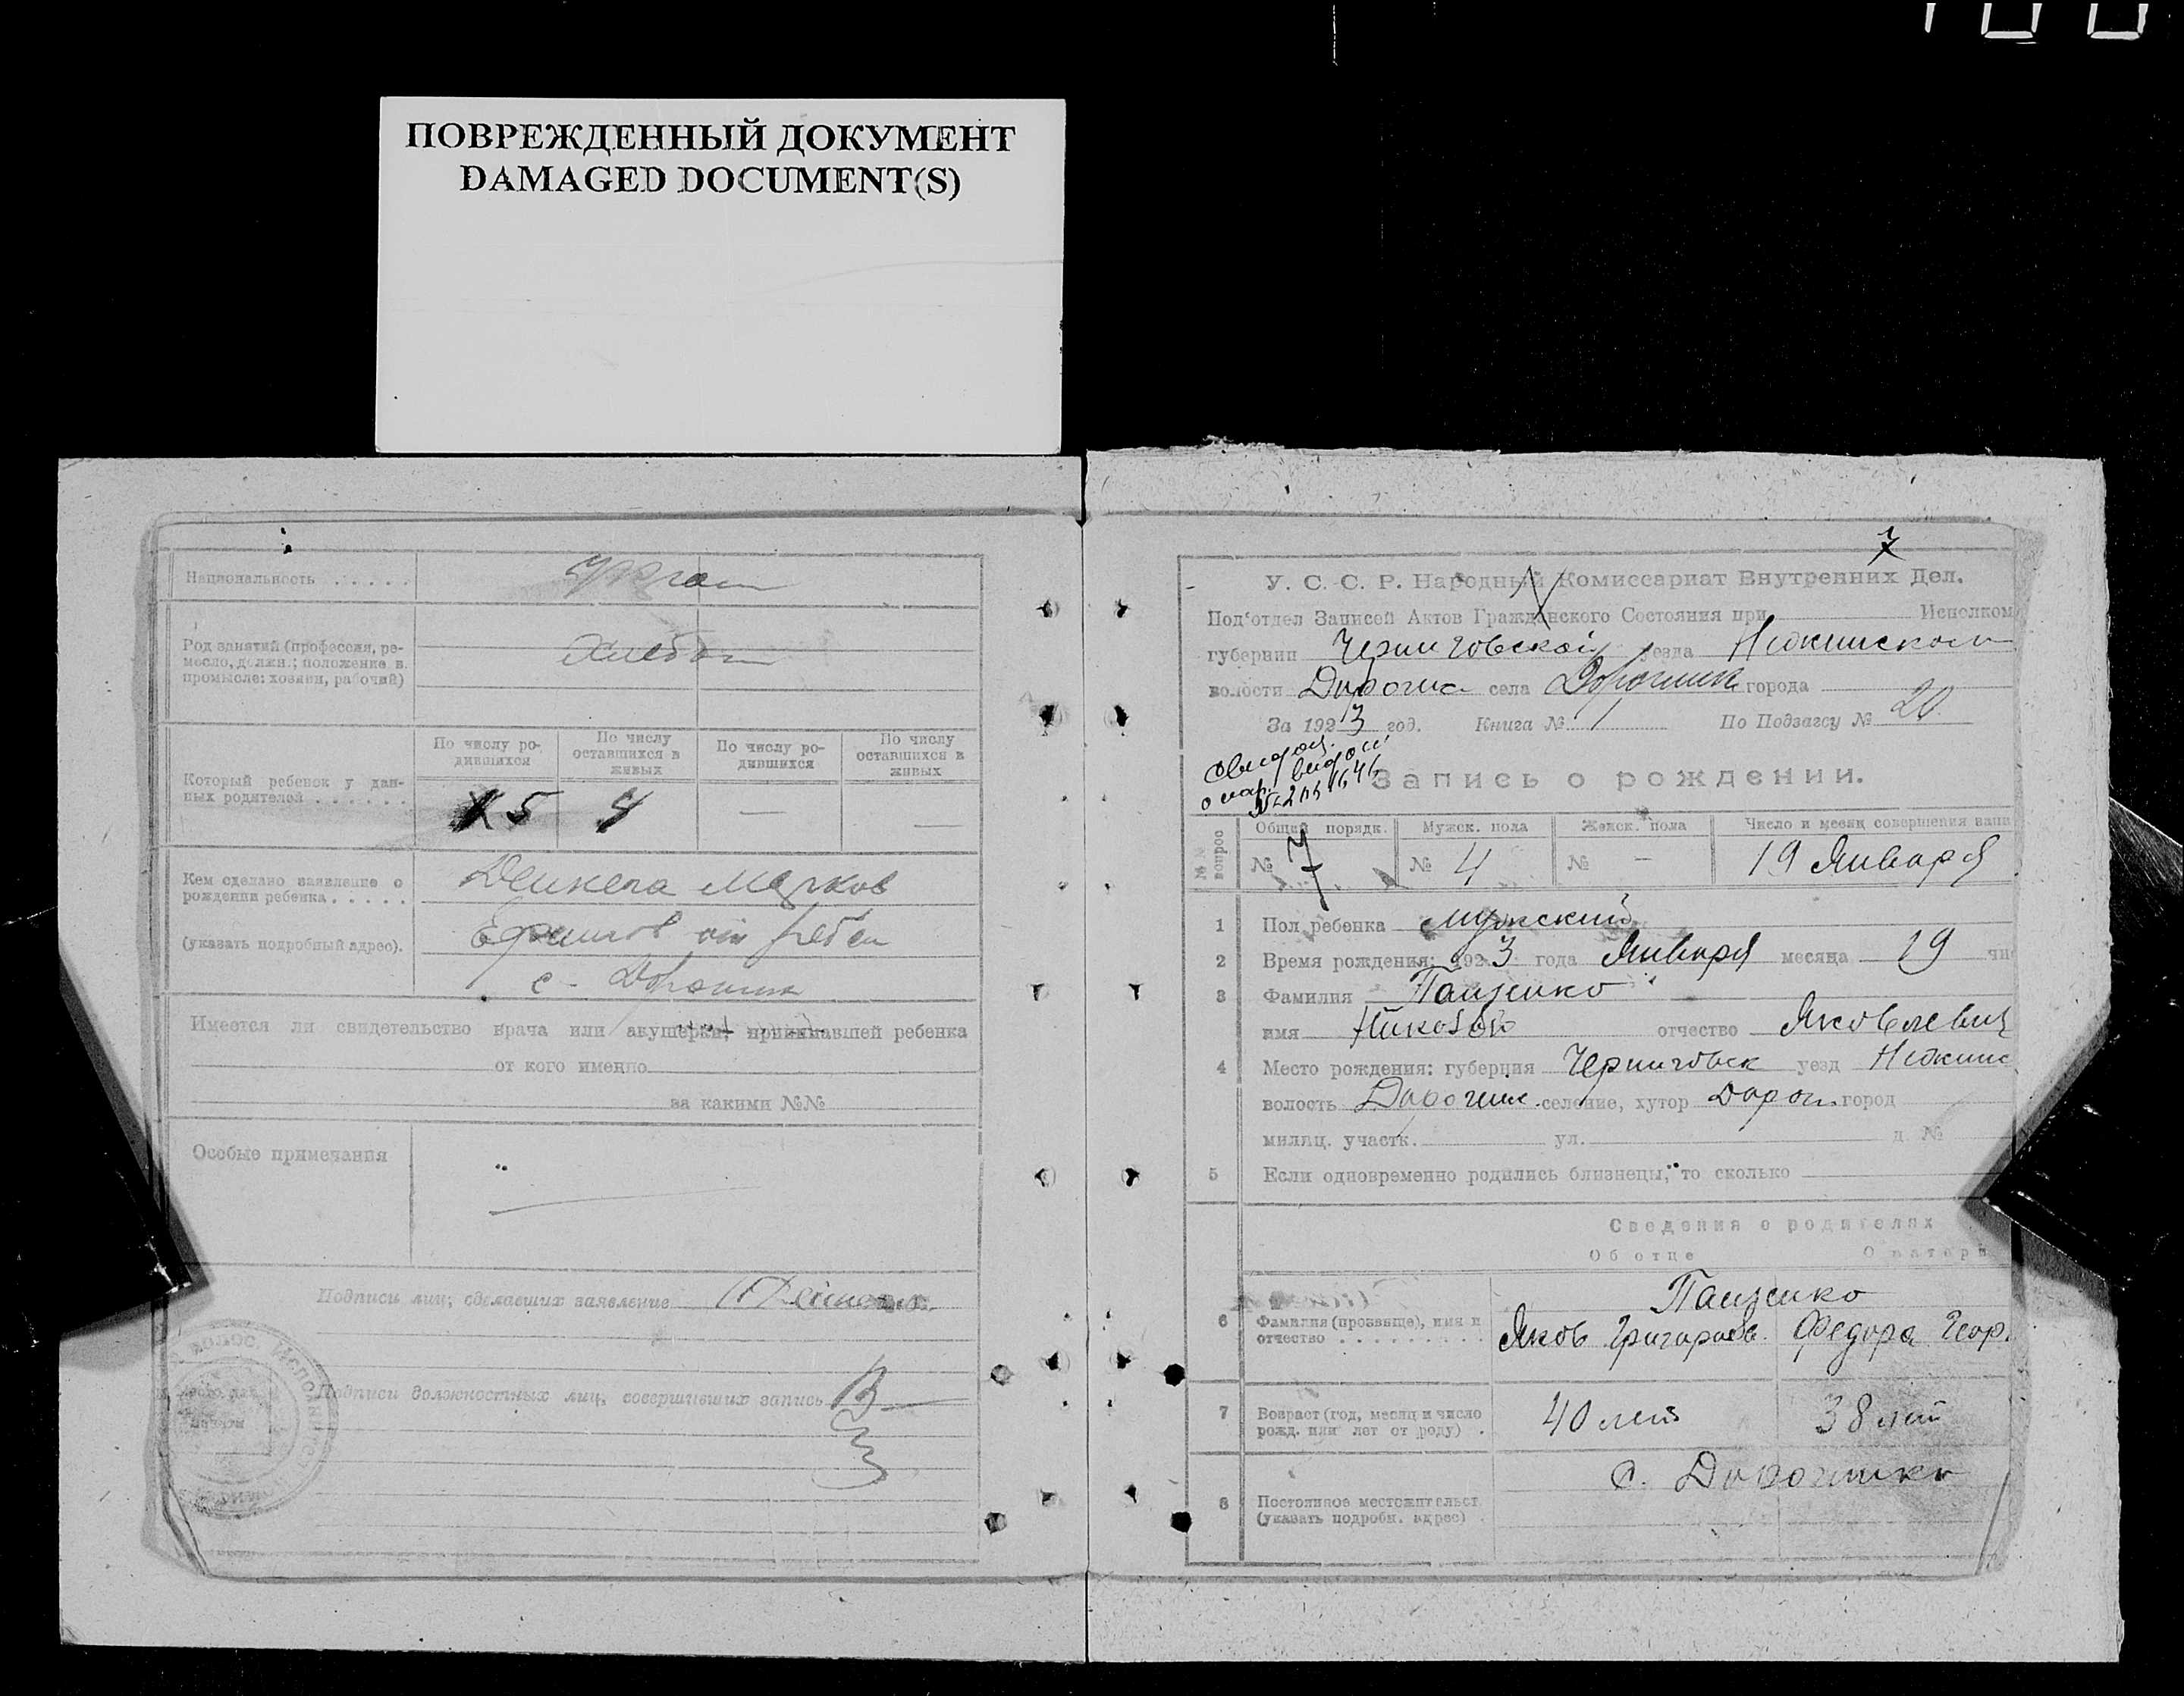 ПОВРЕЖДЕННЫЙ ДОКУМЕНТ
DAMAGED DOCUMENT(S)
Национальность . . . . . Украин
Род занятий (профессия, ре-
месло, должн.; положение в
промысле: хозяин, рабочий)
Хлебоп
По числу ро-
дившихся
По числу
оставшихся в
живых
По числу ро-
дившихся
По числу
оставшихся в
живых
Который ребенок у дан-
ных родителей . . . . . .
5 4 — —
Кем сделано заявление о
рождении ребенка . . . . .
(указать подробный адрес).
с. Дорогинк
Имеется ли свидетельство врача или акушерки, принимавшей ребенка
от кого именно
за какими №№
Особые примечания
Подписи лиц, сделавших заявление
Подписи должностных лиц, совершивших запись
7
У. С. С. Р. Народный Комиссариат Внутренних Дел.
Под'отдел Записей Актов Гражданского Состояния при Исполком
губернии Черниговской уезда Нежинском
волости Дорогин села Дорогинк города
За 1923 год. Книга № 1 По Подзагсу № 20
Запись о рождении.
№№ вопрос
Общий порядк. Мужск. пола Женск. пола Число и месяц совершения запи
№ 7 № 4 № — 19 Января
1 Пол ребенка мужский
2 Время рождения: 1923 года Января месяца 19 чи
3 Фамилия Панченко
имя Николай отчество Яковлевич
4 Место рождения: губерния Черниговск уезд Нежинс
волость Дорогинс. селение, хутор Дорог. город
милиц. участк. ул. д. №
5 Если одновременно родились близнецы, то сколько
Сведения о родителях
Об отце О матери
Панченко
6 Фамилия (прозвище), имя и
отчество . . . . . . . . . Яков Григорьев. Федора Геор.
7 Возраст (год, месяц и число
рожд. или лет от роду) . 40 лет 38 лет
с. Дорогинка
8 Постоянное местожительст.
(указать подробн. адрес) .